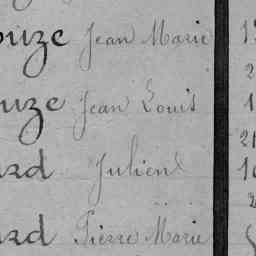 ouze Jean Marie 1
2
uze Jean Louis 1
21
ard Julien 1
2
ard Pierre Marie